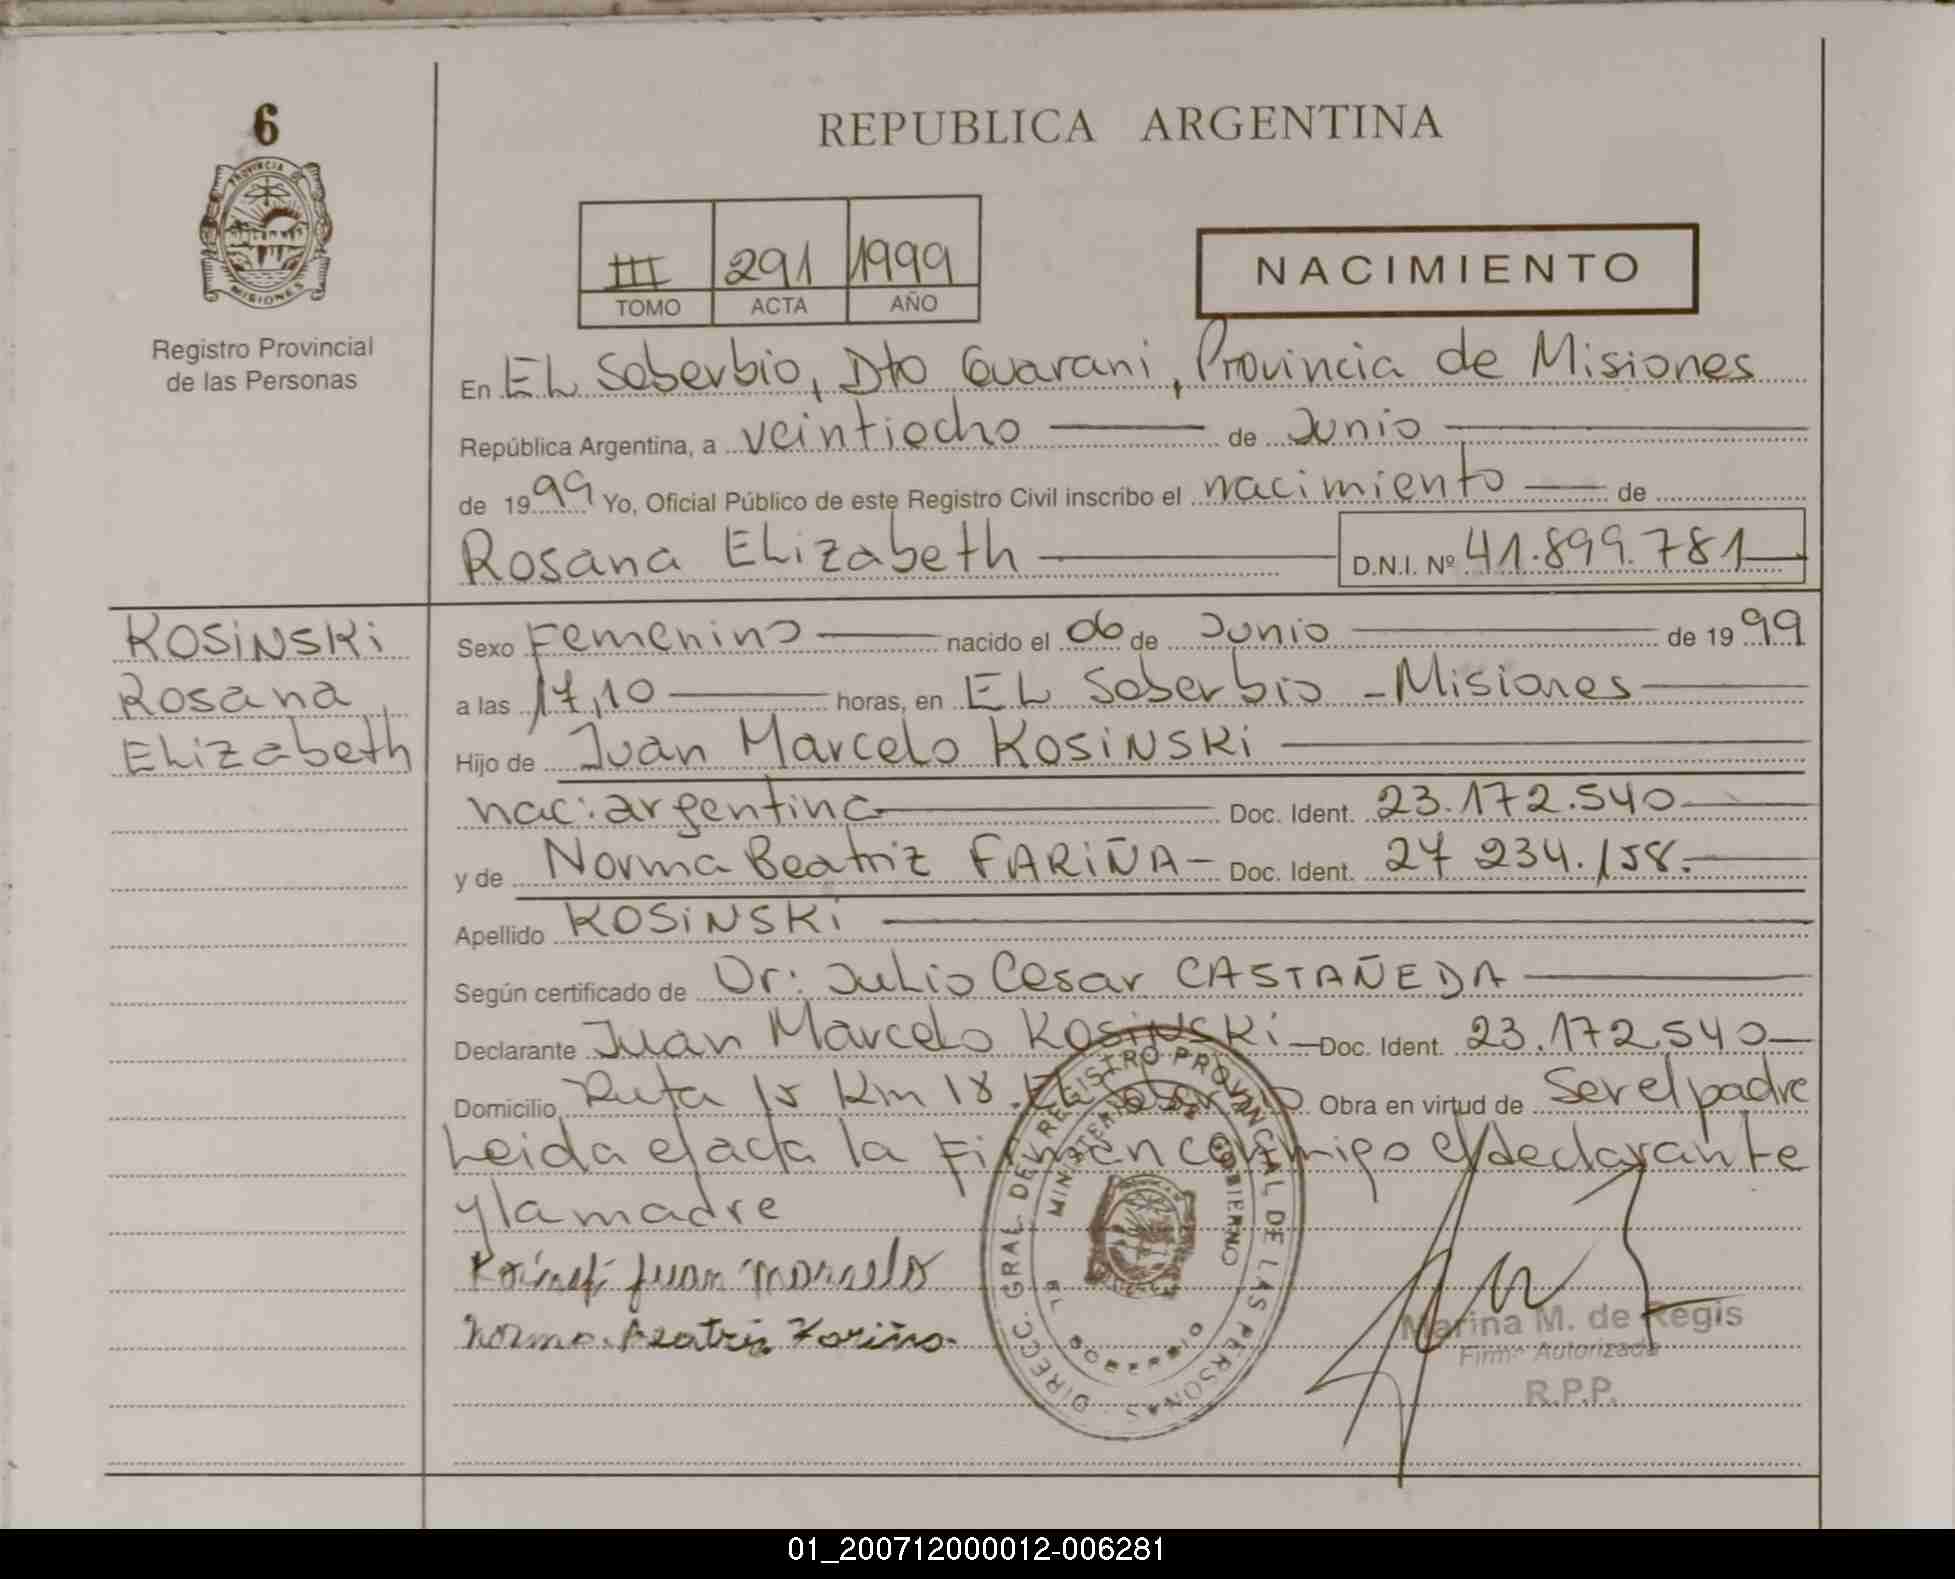 6
PROVINCIA DE
MISIONES
Registro Provincial
de las Personas
REPUBLICA ARGENTINA
III 291 1999
TOMO ACTA AÑO
NACIMIENTO
En EL Soberbio, Dto Guarani, Provincia de Misiones
República Argentina, a veintiocho de Junio
de 1999 Yo, Oficial Público de este Registro Civil inscribo el nacimiento de
Rosana ELizabeth D.N.I. Nº 41.899.781
KOSiNSKi
Rosana
ELizabeth
Sexo Femenino nacido el 06 de Junio de 1999
a las 17,10 horas, en EL Soberbio - Misiones
Hijo de Juan Marcelo KOSiNSKi
nac: argentina Doc. Ident. 23.172.540
y de Norma Beatriz FARiÑA - Doc. Ident. 27 234.158.
Apellido KOSiNSKi
Según certificado de Dr: Julio Cesar CASTAÑEDA
Declarante Juan Marcelo KOSiNSKi - Doc. Ident. 23.172.540
Domicilio Ruta 15 Km 18. EL Soberbio Obra en virtud de Ser el padre
Leida el acta la Firman conmigo el declarante
y la madre
Juan Marcelo
Norma Beatriz Fariña
DIRECC. GRAL. DEL REGISTRO PROVINCIAL DE LAS PERSONAS
MINISTERIO DE GOBIERNO
EL SOBERBIO
Marina M. de Regis
Firma Autorizada
R.P.P.
01_200712000012-006281